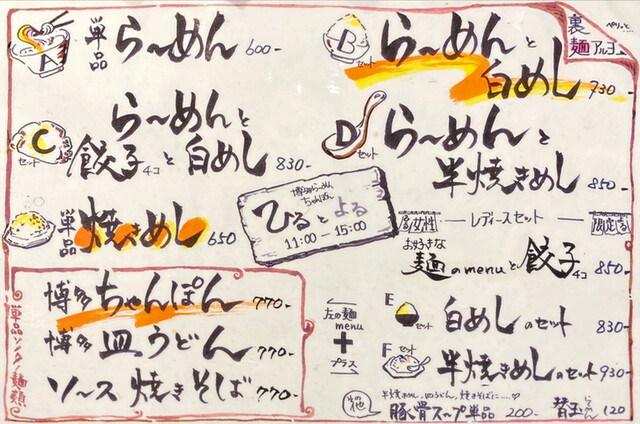 A
単品 らーめん 600-
B セット
らーめんと
白めし 730-
裏麺アルヨ
ペりっと…
C セット
らーめんと
餃子4コと白めし 830-
D セット
らーめんと
半焼きめし 850-
単品 焼きめし 650
博多らーめん
ちゃんぽん
ひるとよる
11:00ー15:00
レディースセット
お好きな
麺のmenuと餃子4コ 850-
単品ソノタノ麺類
博多 ちゃんぽん 770-
博多 皿うどん 770-
ソース焼きそば 770-
左の麺
menu
+
プラス
E セット
白めしのセット 830-
F セット
半焼きめしのセット 930-
その他
豚骨スープ単品 200-
替玉 120